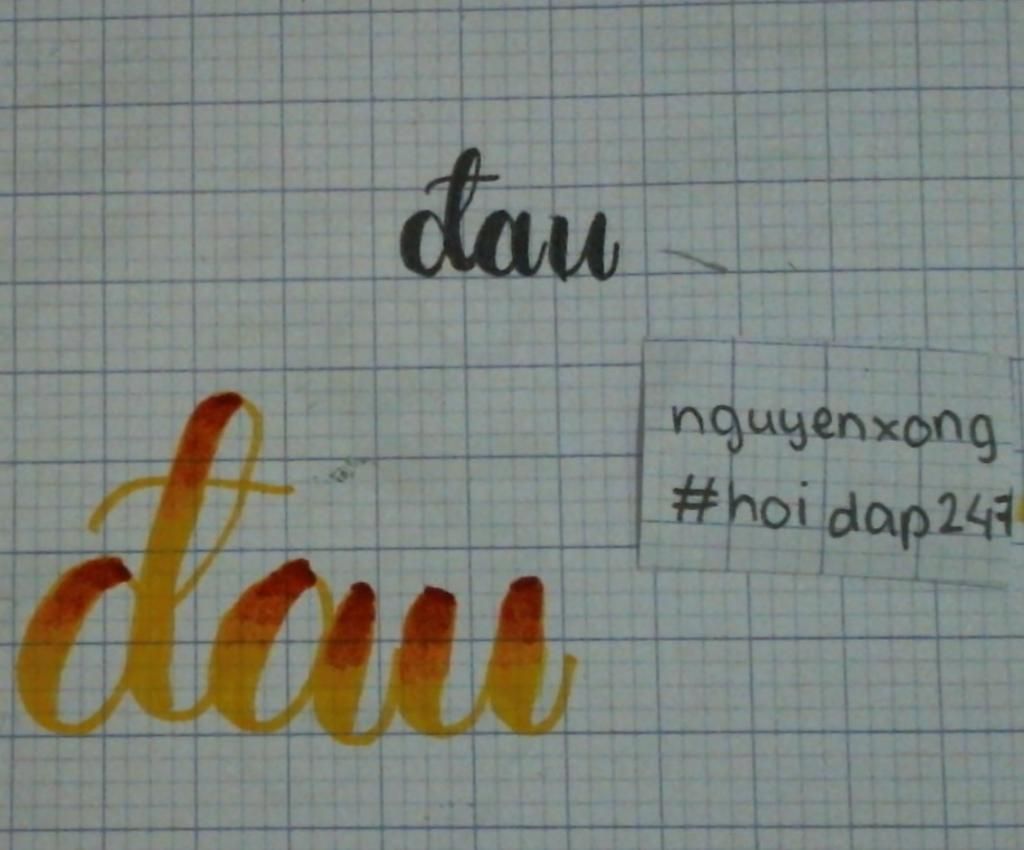 đau
nguyenxong
#hoidap247
đau